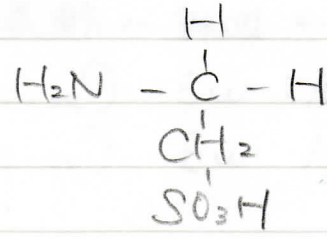 H
H₂N - C - H
CH₂
SO₃H